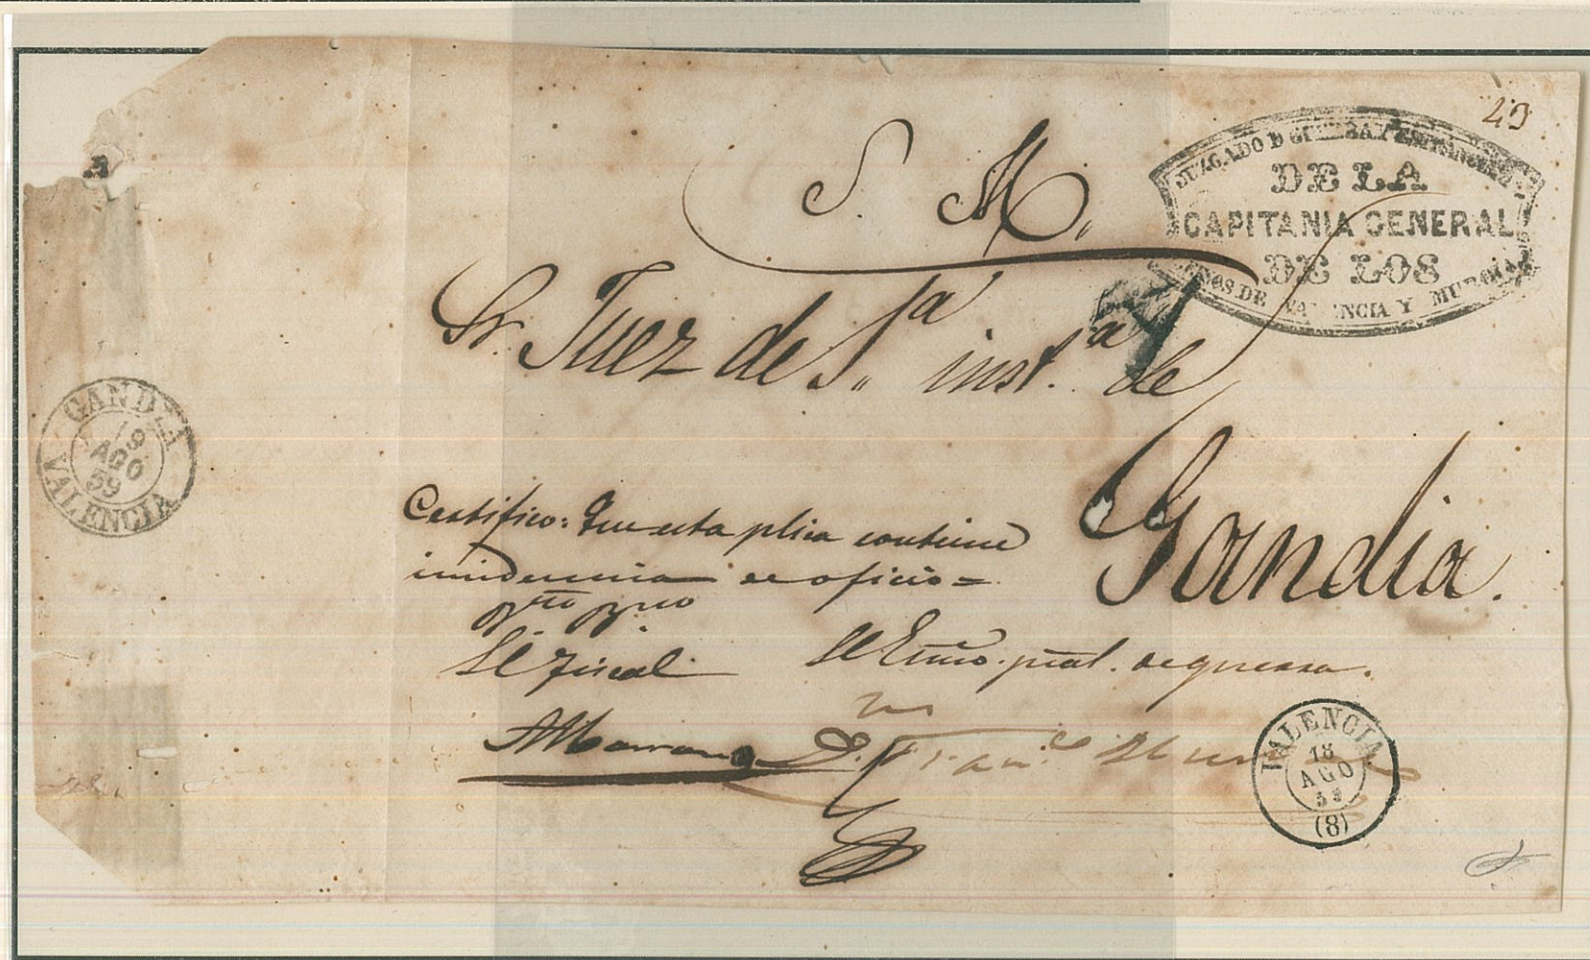 43
JUZGADO D GUERRA Y
DE LA
CAPITANIA GENERAL
DE LOS
DE VALENCIA Y MURCIA
S. M.
Sr. Juez de 1.ª inst.ª de
Gandia.
GANDIA
19
AGO
59
VALENCIA
Certifico: Que esta plica contiene
de oficio =
El Fiscal
El Esno. pral. de guerra.
VALENCIA
18
AGO
59
(8)